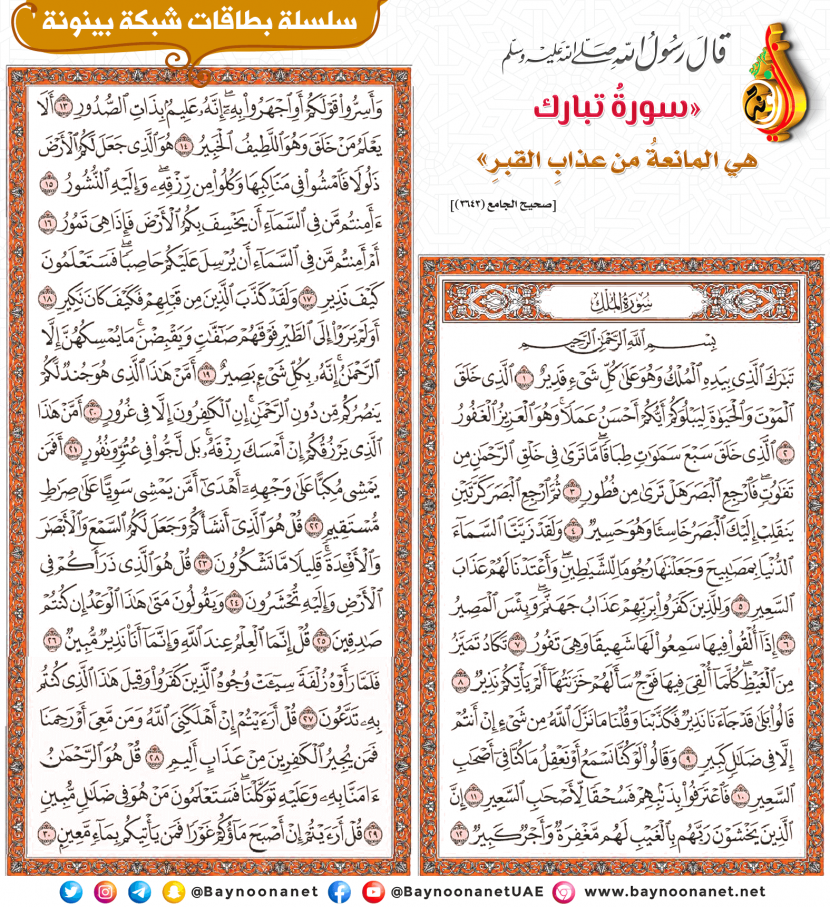 سلسلة بطاقات شبكة بينونة
قال رسول الله صلى الله عليه وسلم
«سورةُ تبارك
هي المانعةُ من عذابِ القبرِ»
[صحيح الجامع (٣٦٤٣)]
سُورَةُ المُلْك
بِسْمِ اللَّهِ الرَّحْمَٰنِ الرَّحِيمِ
تَبَٰرَكَ ٱلَّذِى بِيَدِهِ ٱلْمُلْكُ وَهُوَ عَلَىٰ كُلِّ شَىْءٍ قَدِيرٌ ١ ٱلَّذِى خَلَقَ
ٱلْمَوْتَ وَٱلْحَيَوٰةَ لِيَبْلُوَكُمْ أَيُّكُمْ أَحْسَنُ عَمَلًا ۚ وَهُوَ ٱلْعَزِيزُ ٱلْغَفُورُ
٢ ٱلَّذِى خَلَقَ سَبْعَ سَمَٰوَٰتٍ طِبَاقًا ۖ مَّا تَرَىٰ فِى خَلْقِ ٱلرَّحْمَٰنِ مِن
تَفَٰوُتٍ ۖ فَٱرْجِعِ ٱلْبَصَرَ هَلْ تَرَىٰ مِن فُطُورٍ ٣ ثُمَّ ٱرْجِعِ ٱلْبَصَرَ كَرَّتَيْنِ
يَنقَلِبْ إِلَيْكَ ٱلْبَصَرُ خَاسِئًا وَهُوَ حَسِيرٌ ٤ وَلَقَدْ زَيَّنَّا ٱلسَّمَآءَ
ٱلدُّنْيَا بِمَصَٰبِيحَ وَجَعَلْنَٰهَا رُجُومًا لِّلشَّيَٰطِينِ ۖ وَأَعْتَدْنَا لَهُمْ عَذَابَ
ٱلسَّعِيرِ ٥ وَلِلَّذِينَ كَفَرُوا۟ بِرَبِّهِمْ عَذَابُ جَهَنَّمَ ۖ وَبِئْسَ ٱلْمَصِيرُ
٦ إِذَآ أُلْقُوا۟ فِيهَا سَمِعُوا۟ لَهَا شَهِيقًا وَهِىَ تَفُورُ ٧ تَكَادُ تَمَيَّزُ
مِنَ ٱلْغَيْظِ ۖ كُلَّمَآ أُلْقِىَ فِيهَا فَوْجٌ سَأَلَهُمْ خَزَنَتُهَآ أَلَمْ يَأْتِكُمْ نَذِيرٌ ٨
قَالُوا۟ بَلَىٰ قَدْ جَآءَنَا نَذِيرٌ فَكَذَّبْنَا وَقُلْنَا مَا نَزَّلَ ٱللَّهُ مِن شَىْءٍ إِنْ أَنتُمْ
إِلَّا فِى ضَلَٰلٍ كَبِيرٍ ٩ وَقَالُوا۟ لَوْ كُنَّا نَسْمَعُ أَوْ نَعْقِلُ مَا كُنَّا فِىٓ أَصْحَٰبِ
ٱلسَّعِيرِ ١٠ فَٱعْتَرَفُوا۟ بِذَنۢبِهِمْ فَسُحْقًا لِّأَصْحَٰبِ ٱلسَّعِيرِ ١١ إِنَّ
ٱلَّذِينَ يَخْشَوْنَ رَبَّهُم بِٱلْغَيْبِ لَهُم مَّغْفِرَةٌ وَأَجْرٌ كَبِيرٌ ١٢
وَأَسِرُّوا۟ قَوْلَكُمْ أَوِ ٱجْهَرُوا۟ بِهِۦٓ ۖ إِنَّهُۥ عَلِيمٌۢ بِذَاتِ ٱلصُّدُورِ ١٣ أَلَا
يَعْلَمُ مَنْ خَلَقَ وَهُوَ ٱللَّطِيفُ ٱلْخَبِيرُ ١٤ هُوَ ٱلَّذِى جَعَلَ لَكُمُ ٱلْأَرْضَ
ذَلُولًا فَٱمْشُوا۟ فِى مَنَاكِبِهَا وَكُلُوا۟ مِن رِّزْقِهِۦ ۖ وَإِلَيْهِ ٱلنُّشُورُ ١٥
ءَأَمِنتُم مَّن فِى ٱلسَّمَآءِ أَن يَخْسِفَ بِكُمُ ٱلْأَرْضَ فَإِذَا هِىَ تَمُورُ ١٦
أَمْ أَمِنتُم مَّن فِى ٱلسَّمَآءِ أَن يُرْسِلَ عَلَيْكُمْ حَاصِبًا ۖ فَسَتَعْلَمُونَ
كَيْفَ نَذِيرِ ١٧ وَلَقَدْ كَذَّبَ ٱلَّذِينَ مِن قَبْلِهِمْ فَكَيْفَ كَانَ نَكِيرِ ١٨
أَوَلَمْ يَرَوْا۟ إِلَى ٱلطَّيْرِ فَوْقَهُمْ صَٰٓفَّٰتٍ وَيَقْبِضْنَ ۚ مَا يُمْسِكُهُنَّ إِلَّا
ٱلرَّحْمَٰنُ ۚ إِنَّهُۥ بِكُلِّ شَىْءٍۭ بَصِيرٌ ١٩ أَمَّنْ هَٰذَا ٱلَّذِى هُوَ جُندٌ لَّكُمْ
يَنصُرُكُم مِّن دُونِ ٱلرَّحْمَٰنِ ۚ إِنِ ٱلْكَٰفِرُونَ إِلَّا فِى غُرُورٍ ٢٠ أَمَّنْ هَٰذَا
ٱلَّذِى يَرْزُقُكُمْ إِنْ أَمْسَكَ رِزْقَهُۥ ۚ بَل لَّجُّوا۟ فِى عُتُوٍّ وَنُفُورٍ ٢١ أَفَمَن
يَمْشِى مُكِبًّا عَلَىٰ وَجْهِهِۦٓ أَهْدَىٰٓ أَمَّن يَمْشِى سَوِيًّا عَلَىٰ صِرَٰطٍ
مُّسْتَقِيمٍ ٢٢ قُلْ هُوَ ٱلَّذِىٓ أَنشَأَكُمْ وَجَعَلَ لَكُمُ ٱلسَّمْعَ وَٱلْأَبْصَٰرَ
وَٱلْأَفْـِٔدَةَ ۖ قَلِيلًا مَّا تَشْكُرُونَ ٢٣ قُلْ هُوَ ٱلَّذِى ذَرَأَكُمْ فِى
ٱلْأَرْضِ وَإِلَيْهِ تُحْشَرُونَ ٢٤ وَيَقُولُونَ مَتَىٰ هَٰذَا ٱلْوَعْدُ إِن كُنتُمْ
صَٰدِقِينَ ٢٥ قُلْ إِنَّمَا ٱلْعِلْمُ عِندَ ٱللَّهِ وَإِنَّمَآ أَنَا۠ نَذِيرٌ مُّبِينٌ ٢٦
فَلَمَّا رَأَوْهُ زُلْفَةً سِيٓـَٔتْ وُجُوهُ ٱلَّذِينَ كَفَرُوا۟ وَقِيلَ هَٰذَا ٱلَّذِى كُنتُم
بِهِۦ تَدَّعُونَ ٢٧ قُلْ أَرَءَيْتُمْ إِنْ أَهْلَكَنِىَ ٱللَّهُ وَمَن مَّعِىَ أَوْ رَحِمَنَا
فَمَن يُجِيرُ ٱلْكَٰفِرِينَ مِنْ عَذَابٍ أَلِيمٍ ٢٨ قُلْ هُوَ ٱلرَّحْمَٰنُ
ءَامَنَّا بِهِۦ وَعَلَيْهِ تَوَكَّلْنَا ۖ فَسَتَعْلَمُونَ مَنْ هُوَ فِى ضَلَٰلٍ مُّبِينٍ
٢٩ قُلْ أَرَءَيْتُمْ إِنْ أَصْبَحَ مَآؤُكُمْ غَوْرًا فَمَن يَأْتِيكُم بِمَآءٍ مَّعِينٍۭ ٣٠
@Baynoonanet @BaynoonanetUAE www.baynoonanet.net